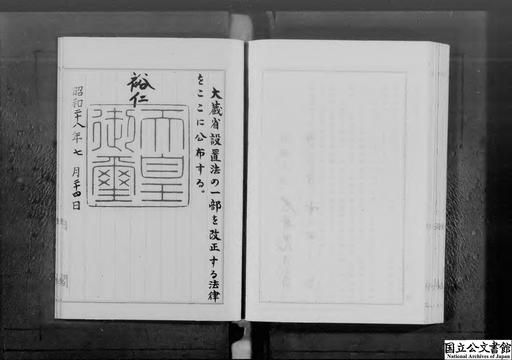 大蔵省設置法の一部を改正する法律
をここに公布する。
裕仁
天皇
御璽
昭和二十八年七月二十四日
国立公文書館
National Archives of Japan